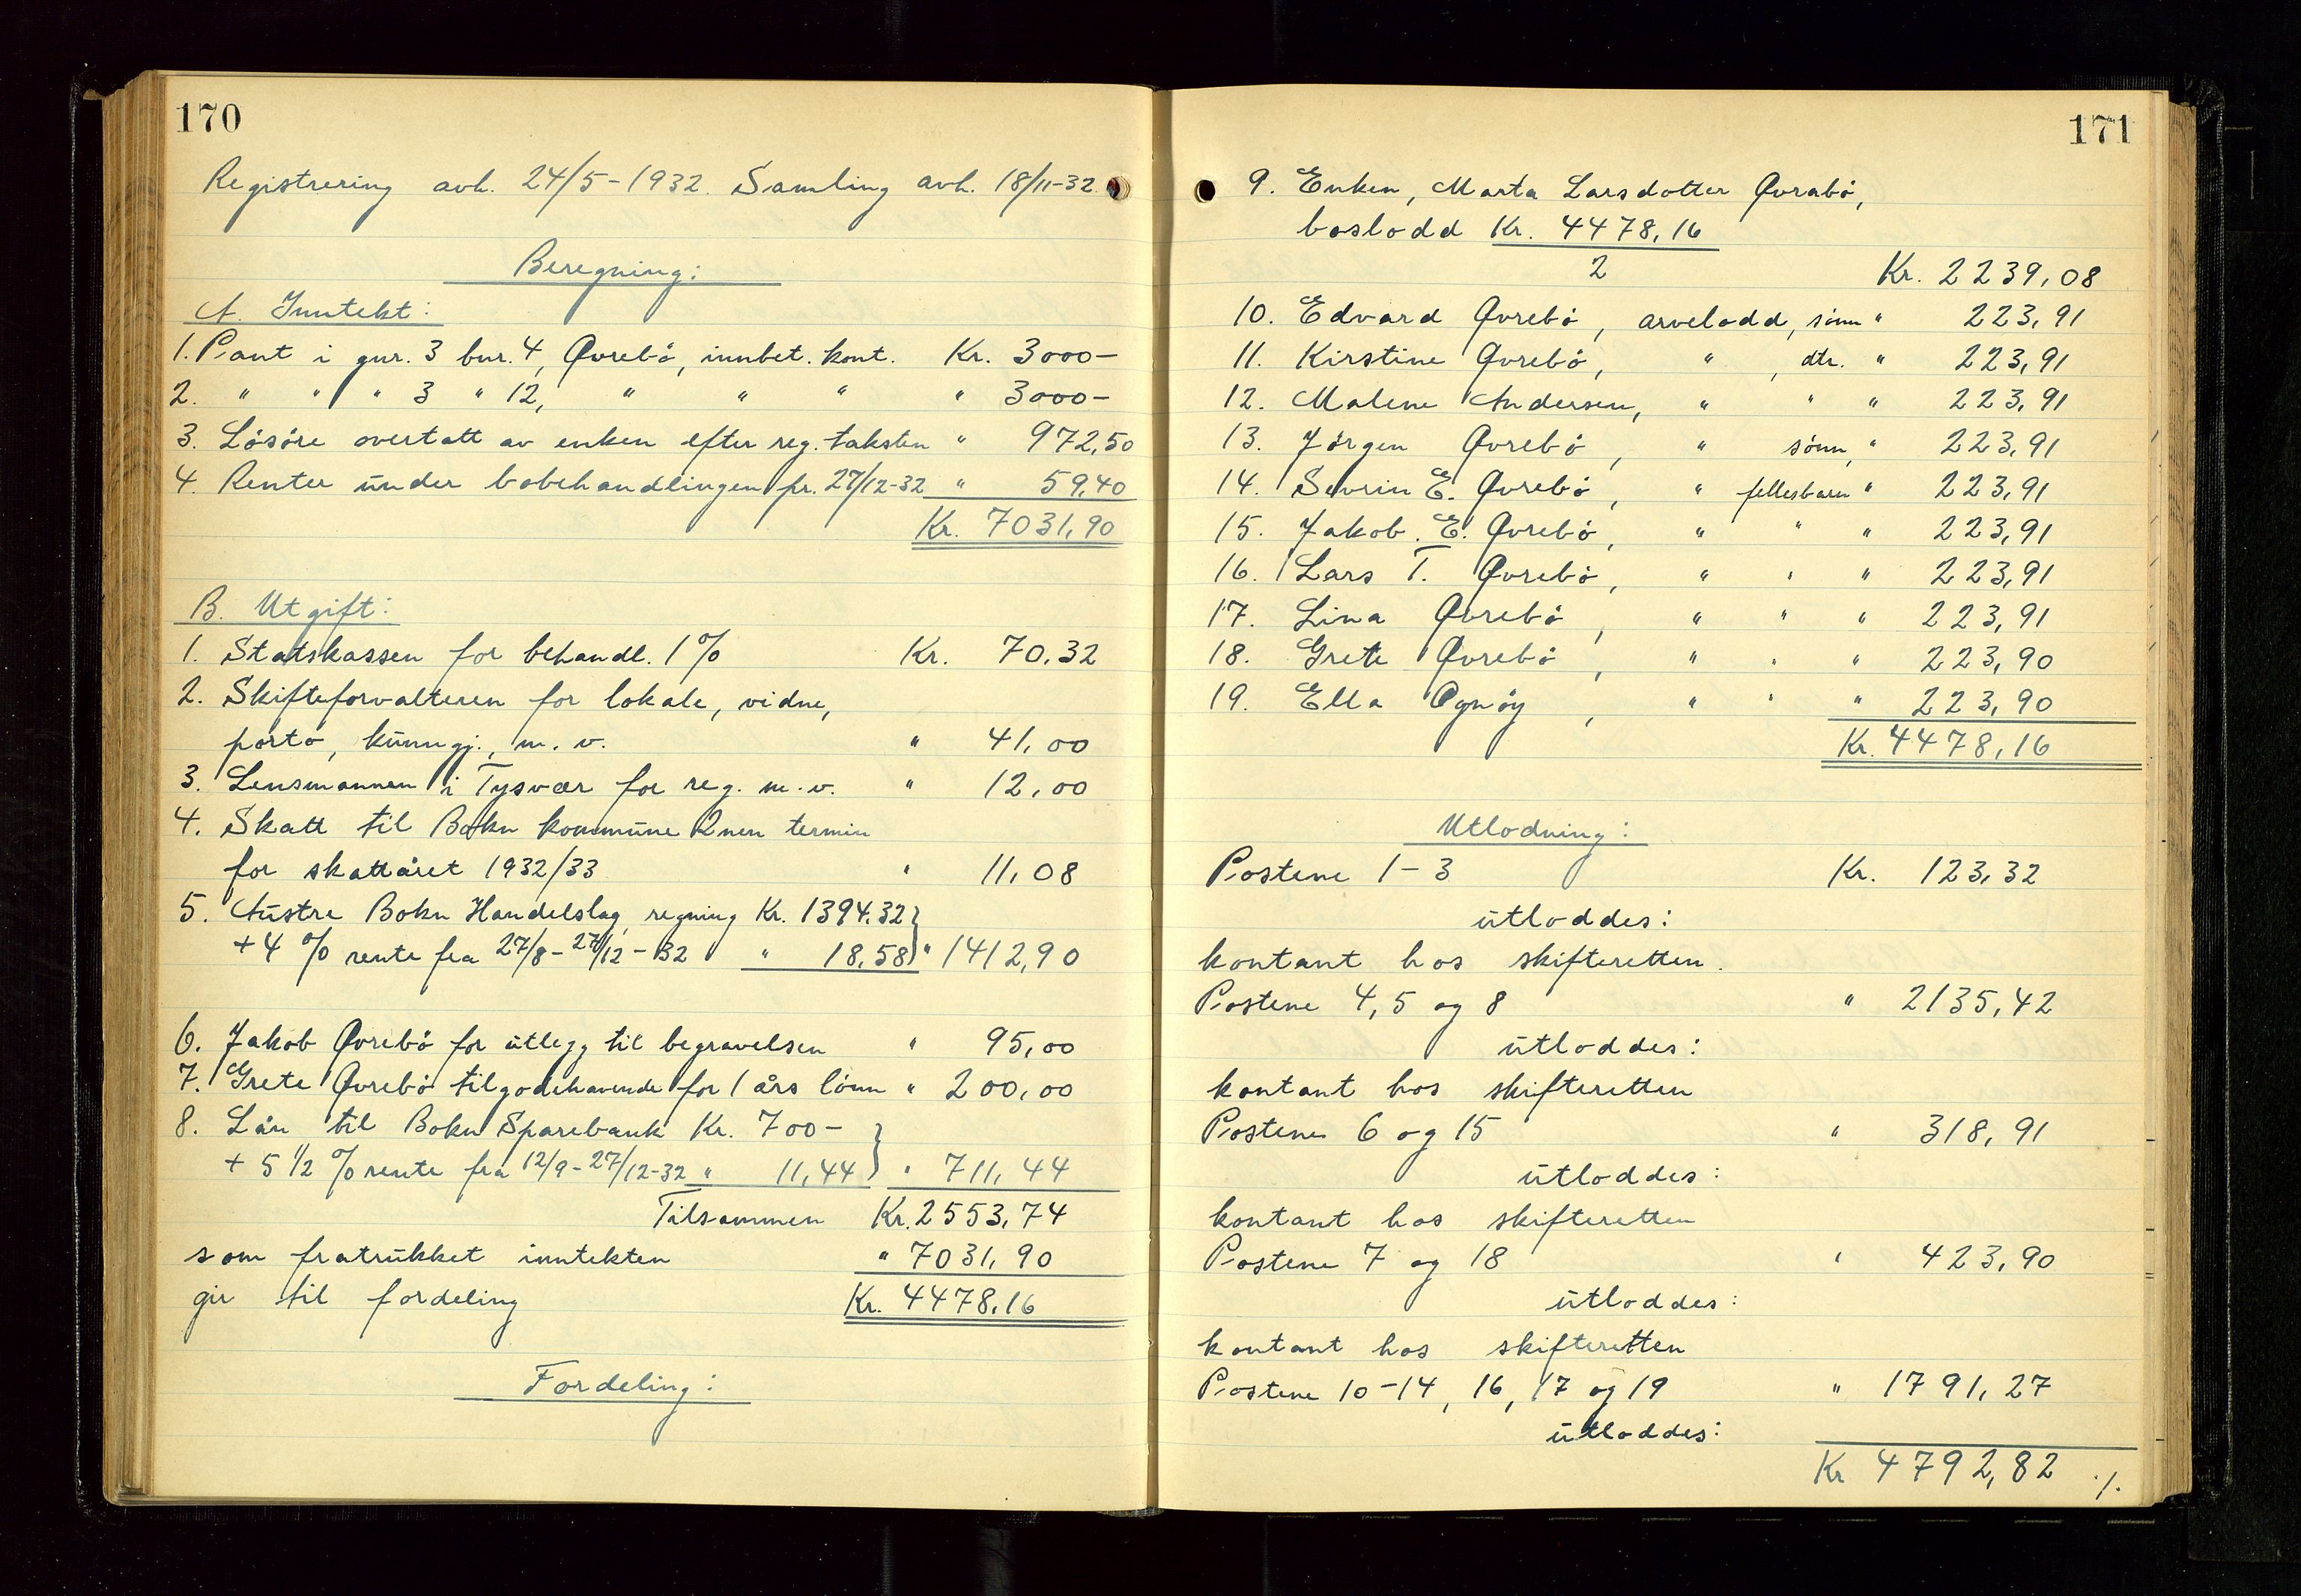 170
Registrering avh. 24/5-1932. Samling avh. 18/11-32.
Beregning:
A. Inntekt:
1. Pant i gnr. 3 bnr. 4, Øvrebö, innbet. kont. Kr. 3000-
2. " " " 3 " 12, " " " " 3000-
3. Lösöre overtatt av enken efter reg. taksten " 972,50
4. Renter under bobehandlingen pr. 27/12-32 " 59,40
Kr. 7031,90
B. Utgift:
1. Statskassen for behandl. 1% Kr. 70,32
2. Skifteforvalteren for lokale, vidne,
porto, kunngj., m. v. " 41,00
3. Lensmannen i Tysvær for reg. m. v. " 12,00
4. Skatt til Bokn kommune 2nen termin
for skattåret 1932/33 " 11,08
5. Austre Bokn Handelslag, regning Kr. 1394.32
+ 4 % rente fra 27/8-27/12-32 " 18,58 " 1412,90
6. Jakob Øvrebö for utlegg til begravelsen " 95,00
7. Grete Øvrebö tilgodehavende for 1 års lönn " 200,00
8. Lån til Bokn Sparebank Kr. 700-
+ 5 1/2 % rente fra 12/9-27/12-32 " 11,44 " 711,44
Tilsammen Kr. 2553,74
som fratrukket inntekten " 7031,90
gir til fordeling Kr. 4478,16
Fordeling:
171
9. Enken, Marta Larsdotter Øvrabö,
boslodd Kr. 4478,16
2 Kr. 2239,08
10. Edvard Øvrebö, arvelodd, sönn " 223,91
11. Kirstine Øvrebö, " , dtr. " 223,91
12. Malene Andersen, " " " 223,91
13. Jörgen Øvrebö, " sönn, " 223,91
14. Sevrin E. Øvrebö, " fellesbarn " 223,91
15. Jakob. E. Øvrebö, " " " 223,91
16. Lars T. Øvrebö, " " " 223,91
17. Lina Øvrebö, " " " 223,91
18. Grete Øvrebö, " " " 223,90
19. Ella Ognöy, " " " 223,90
Kr. 4478,16
Utlodning:
Postene 1-3 Kr. 123,32
utloddes:
kontant hos skifteretten.
Postene 4, 5 og 8 " 2135,42
utloddes:
kontant hos skifteretten
Postene 6 og 15 " 318,91
utloddes:
kontant hos skifteretten
Postene 7 og 18 " 423,90
utloddes:
kontant hos skifteretten
Postene 10-14, 16, 17 og 19 " 1791,27
utloddes:
Kr 4792,82 ./.